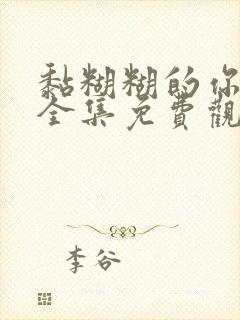 黏糊糊的你
全集免費觀
李谷